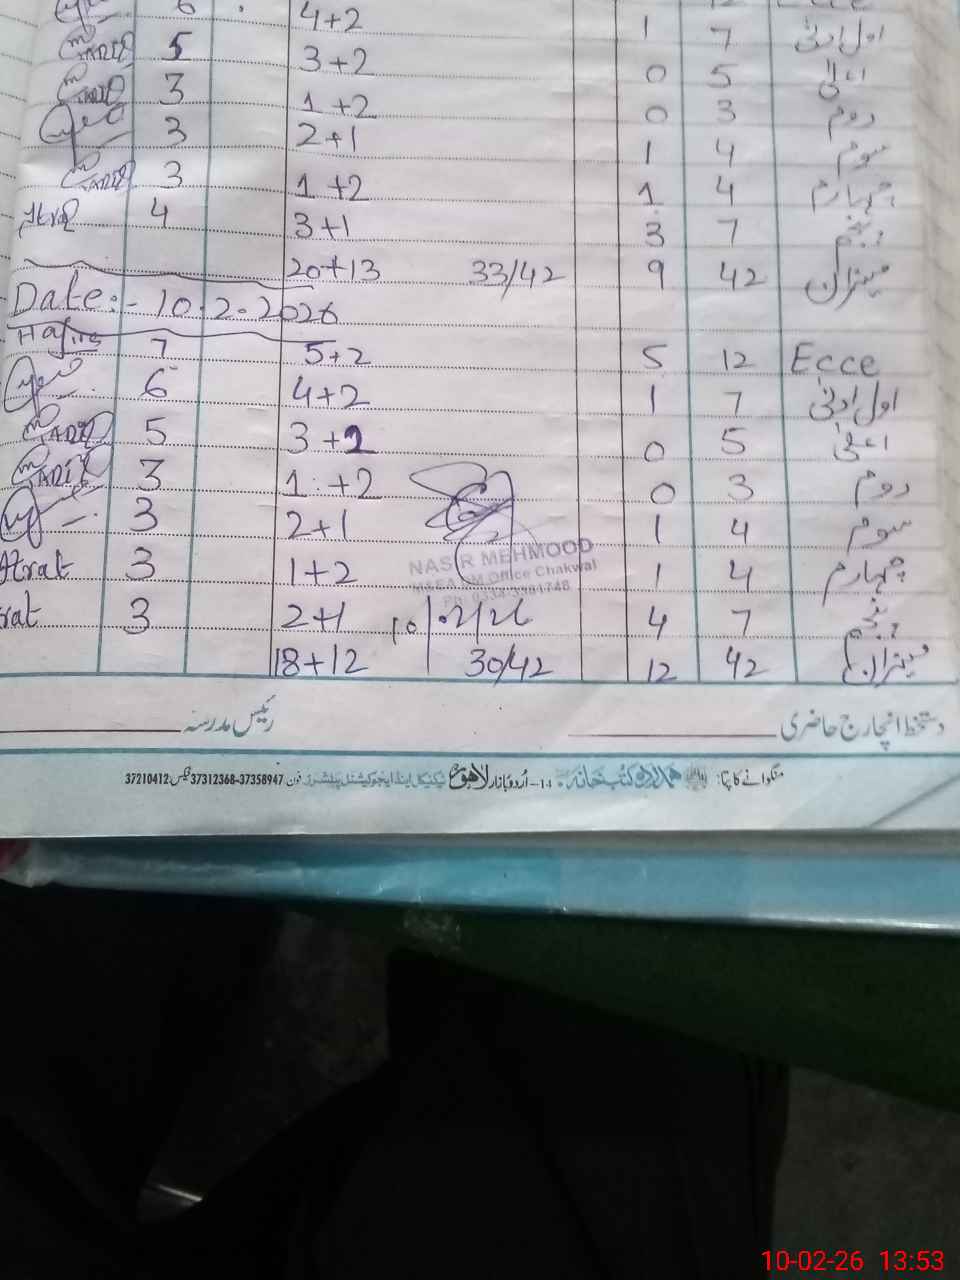 6 4+2 1 7 اول ادنیٰ
5 3+2 0 5 اعلیٰ
3 1+2 0 3 دوم
3 2+1 1 4 سوم
3 1+2 1 4 چہارم
4 3+1 3 7 پنجم
20+13 33/42 9 42 میزان
Date:- 10.2.2026
7 5+2 5 12 Ecce
6 4+2 1 7 اول ادنیٰ
5 3+2 0 5 اعلیٰ
3 1+2 0 3 دوم
3 2+1 1 4 سوم
3 1+2 1 4 چہارم
3 2+1 4 7 پنجم
18+12 30/42 12 42 میزان
NASIR MEHMOOD
M&EA DM Office Chakwal
10.2/26
دستخط انچارج حاضری رئیس مدرسہ
منگوانے کا پتا: ہمدرد کتب خانہ 14-اُردو بازار لاہور فون 37358947-37312368 فیکس: 37210412
10-02-26 13:53